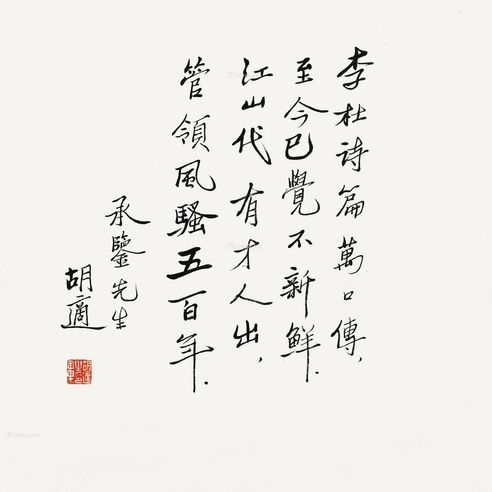 李杜詩篇萬口傳,
至今已覺不新鮮.
江山代有才人出,
管領風騷五百年.
承鑒先生
胡適